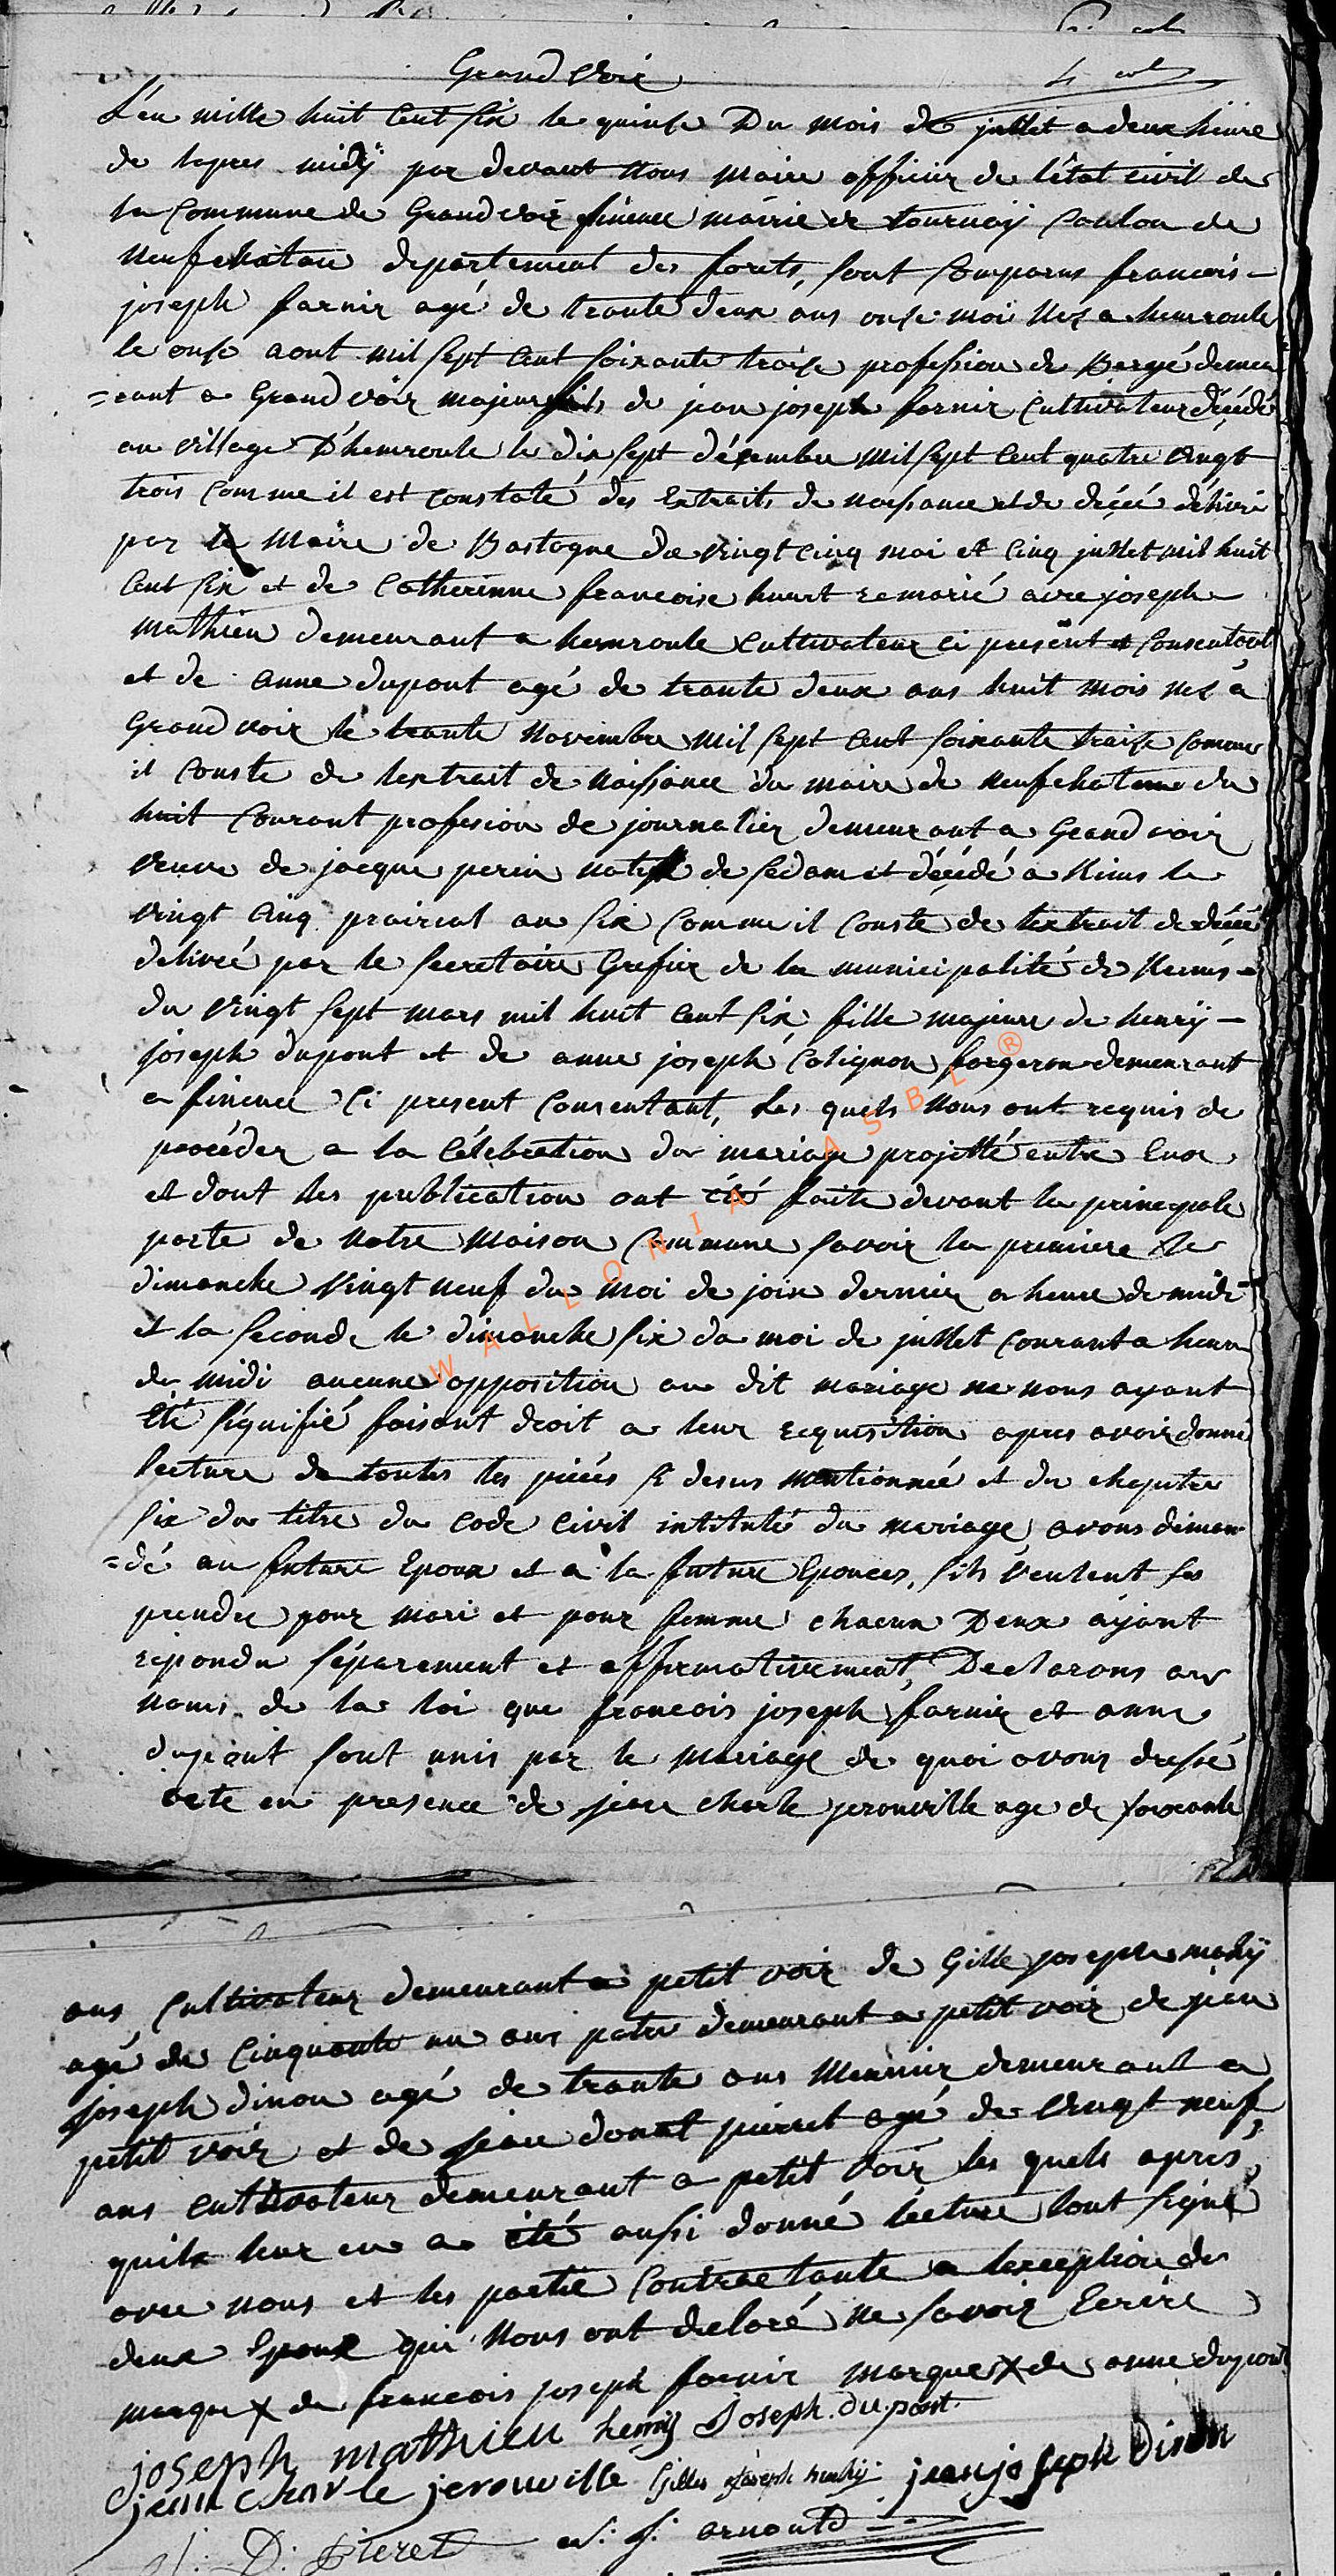 Grand Voir
L'en mille huit Cent six le quinse Du mois de jullet a deux heure
de lapres midÿ par devant Nous Maire officier de l'état civil de
la Commune de Grand voir finence mairie de tournaÿ Canton de
Neufchatau departement des forets, sont Comparus francois
joseph farnir agé de trante deux ans onse moi Nez a hemroule
le onse aout mil sept Cent soixante traise profession de Bergé demeu
=rant a Grand voir majeur fils de jean joseph farnir Cultivateur décédé
au village D'hemroule le dix sept désembre mil sept Cent quatre vingt
trois Comme il est Constaté des Extraits de naissance et de décé délivré
par le Maire de Bastogne du vingt cinq mai et Cinq jullet mil huit
Cent six et de Catherinne francoise huart remarié avec joseph
Mathieu demeurant a hemroule Cultivateur ci present et Consentant
et de anne dupont agé de trante deux ans huit mois nez a
Grand voir le trante Novembre Mil sept Cent soixante traise Comme
il Conste de lextrait de Naissance du maire de neufchateau du
huit Courant profesion de journalier demeurant a Grand voir
veuve de jacque perin natif de sedam et décédé a Nims le
vingt Cinq prairial an six Comme il Conste de lextrait de décé
delivré par le secretaire Grefier de la municipalité de Neims
du vingt sept mars mil huit Cent six fille majeure de henrÿ
joseph dupont et de anne joseph Colignon forgeron demeurant
a finence Ci present Consentant, Les quels Nous ont requis de
procéder a la Célebration du mariage projetté entre Eux
et dont les publication ont été faite devant la principale
porte de Notre Maison Commune savoir la premiere le
dimanche vingt neuf du Moi de join dernier a heure de midi
et la seconde le dimanche six du moi de jullet Courant a heure
de midi aucune opposition au dit mariage ne nous ayant
Eté signifié faisant droit a leur requisition apres avoir donné
lecture de toutes les piéces si desus mentionneé et du chapitre
six du titre du Code Civil intitulé du mariage avons deman
=dé au future Epoux et a la future Epouces, sils veulent ses
prendre pour mari et pour femme chacun Deux aÿant
repondu séparement et affirmativement, Declarons au
nom de la loi que francois joseph farnir et anne
dupont sont unis par le Mariage de quoi avons dressé
acte en presence de jean charle jerouville age de soixante
ans Cultivateur demeurant a petit voir de Gille joseph mahÿ
agé de Cinquante un ans patre demeurant a petit voir de jean
joseph dinon agé de trante ans Meunier demeurant a
petit voir et de jean donat pierret agé de vingt neuf
ans cultivateur demeurant a petit voir les quels apres
quils leur en a été aussi donné lecture lont signé
avec nous et les partie Contractante a lexception des
deux Epoux qui Nous ont declaré ne savoir Ecrire
marque X de francois joseph farnir marque X de anne dupont
joseph mathieu henrij Joseph. du pont.
jean charle jerouville Gilles joseph mahÿ jean joseph Dinon
J: D: Pieret J: arnould
WALLONIA ASBL ®